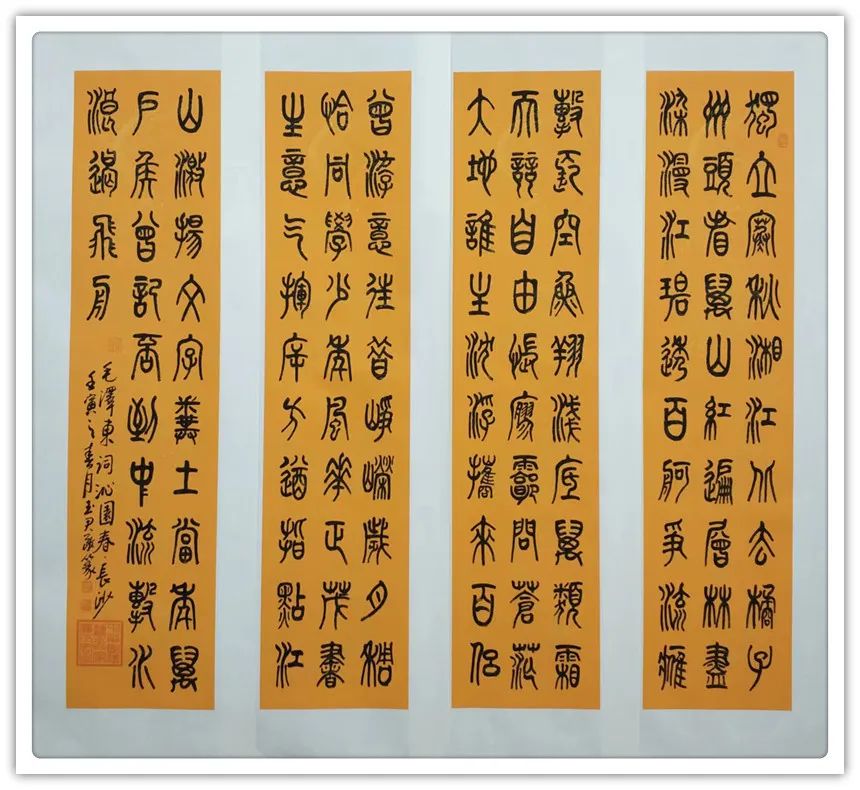 獨立寒秋湘江北去橘子
州頭看萬山紅遍層林盡
染漫江碧透百舸爭流鷹
擊長空魚翔淺底萬類霜
天競自由悵寥廓問蒼茫
大地誰主沈浮攜來百侶
曾游憶往昔崢嶸歲月稠
恰同學少年風華正茂書
生意气揮斥方遒指點江
山激揚文字糞土當年萬
户矦曾記否到中流擊水
浪遏飛舟
毛澤東詞沁園春·長沙
壬寅之春月 篆